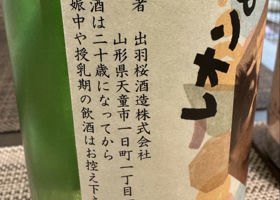 レオン
者 出羽桜酒造株式会社
山形県天童市一日町一丁目
酒は二十歳になってから
娠中や授乳期の飲酒はお控え下さ